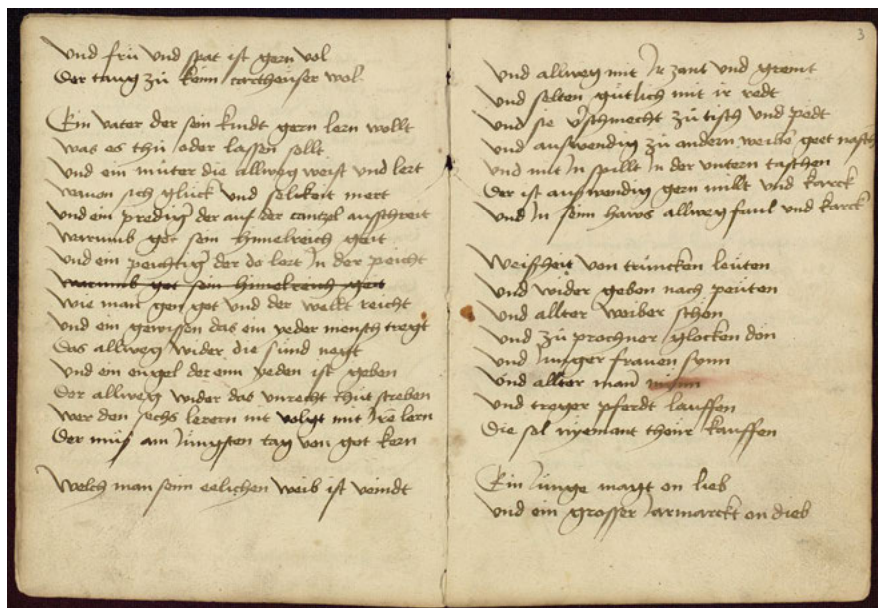 vnd frü vnd spat ist gern vol
Der taug zü keim carthewser wol
Ein vater der sein kindt gern lern wollt
was es thü oder lassen sollt
vnd ein müter die allweg weist vnd lert
wauon sich glück vnd selikeit mert
vnd ein prediger der auf der cantzel aufschreit
warumb got sein himelreich geit
vnd ein peichtiger der do lert Jn der peicht
warumb got sein himelreich geit
wie man gen got vnd der wellt reicht
vnd ein gewissen das ein yeder mensch tregt
Das allweg wider die sünd
vnd ein engel der eim yeden ist geben
Der allweg wider das vnrecht thüt streben
wer den sechs lerern nit volgt mit Jrē lern
Der müß am Jüngsten tag von got kern
Welch man seim eelichen weib ist veindt
3
vnd allweg mit Jr zant vnd greint
vnd selten gütlich mit ir redt
vnd sie verschmecht zü tisch vnd pedt
vnd auswendig zü andern weiben geet nasch
vnd mit Jn spillt Jn der vntern taschen
Der ist auswendig gern millt vnd starck
vnd Jn seim haws allweg faul vnd karck
Weisheit von trüncken leüten
vnd wider geben nach peüten
vnd allter weiber schön
vnd zü prochner glocken dön
vnd Junger frauen synn
vnd allter man mynn
vnd treger pferdt lauffen
Die sol nyemant theür kauffen
Ein Junge magt on lieb
vnd ein grosser Jarmarckt on dieb